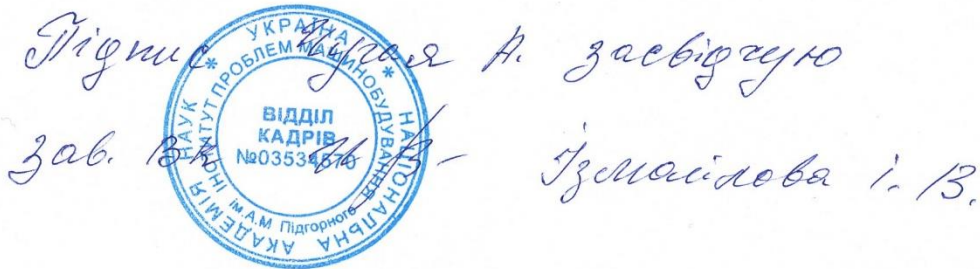 Підпис А. засвідчую
зав. ВК Ізмайлова І. В.
УКРАЇНА * НАЦІОНАЛЬНА АКАДЕМІЯ НАУК *
ІНСТИТУТ ПРОБЛЕМ МАШИНОБУДУВАННЯ
ім. А.М Підгорного
ВІДДІЛ
КАДРІВ